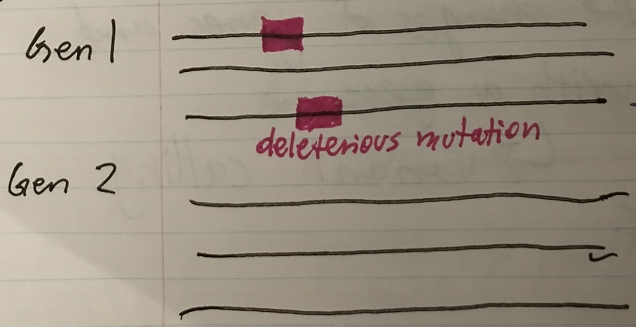 Gen 1
deleterious mutation
Gen 2